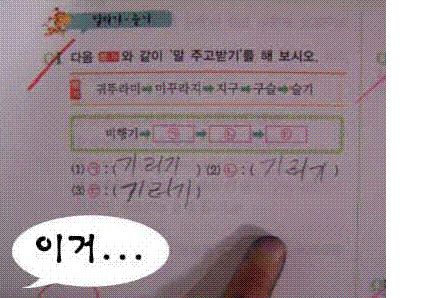 말하기·놀기
다음 보기와 같이 '말 주고받기'를 해 보시오.
귀뚜라미➡미꾸라지➡지구➡구슬➡슬기
비행기➡㉠➡㉡➡㉢
(1) ㉠ : (기러기) (2) ㉡ : (기러기)
(3) ㉢ : (기러기)
이거...